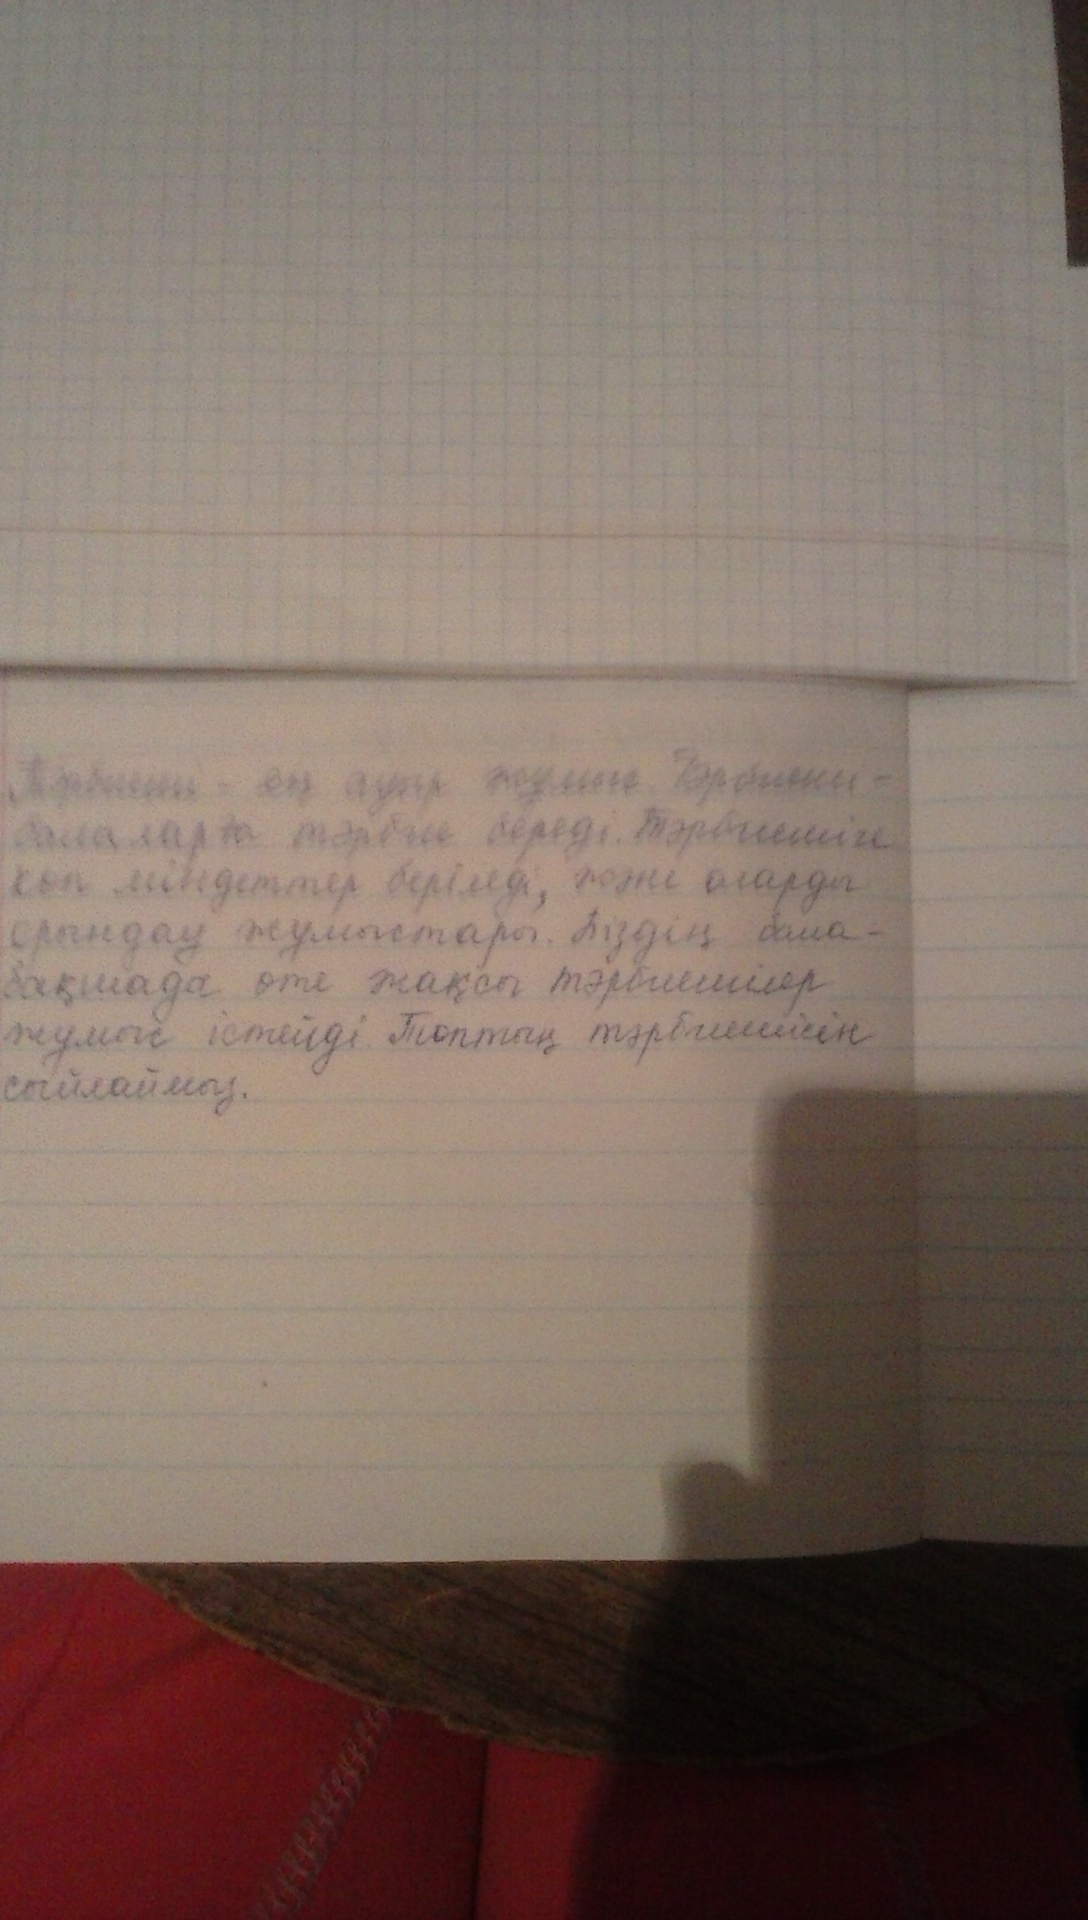 Тәрбиеші - ең ауыр жұмыс Тәрбиеші -
балаларға тәрбие береді. Тәрбиешіге
көп міндеттер беріледі, және оларды
орындау жұмыстары. Біздің бала-
бақшада өте жақсы тәрбиешілер
жұмыс істейді. Топтың тәрбиешісін
сыйлаймыз.